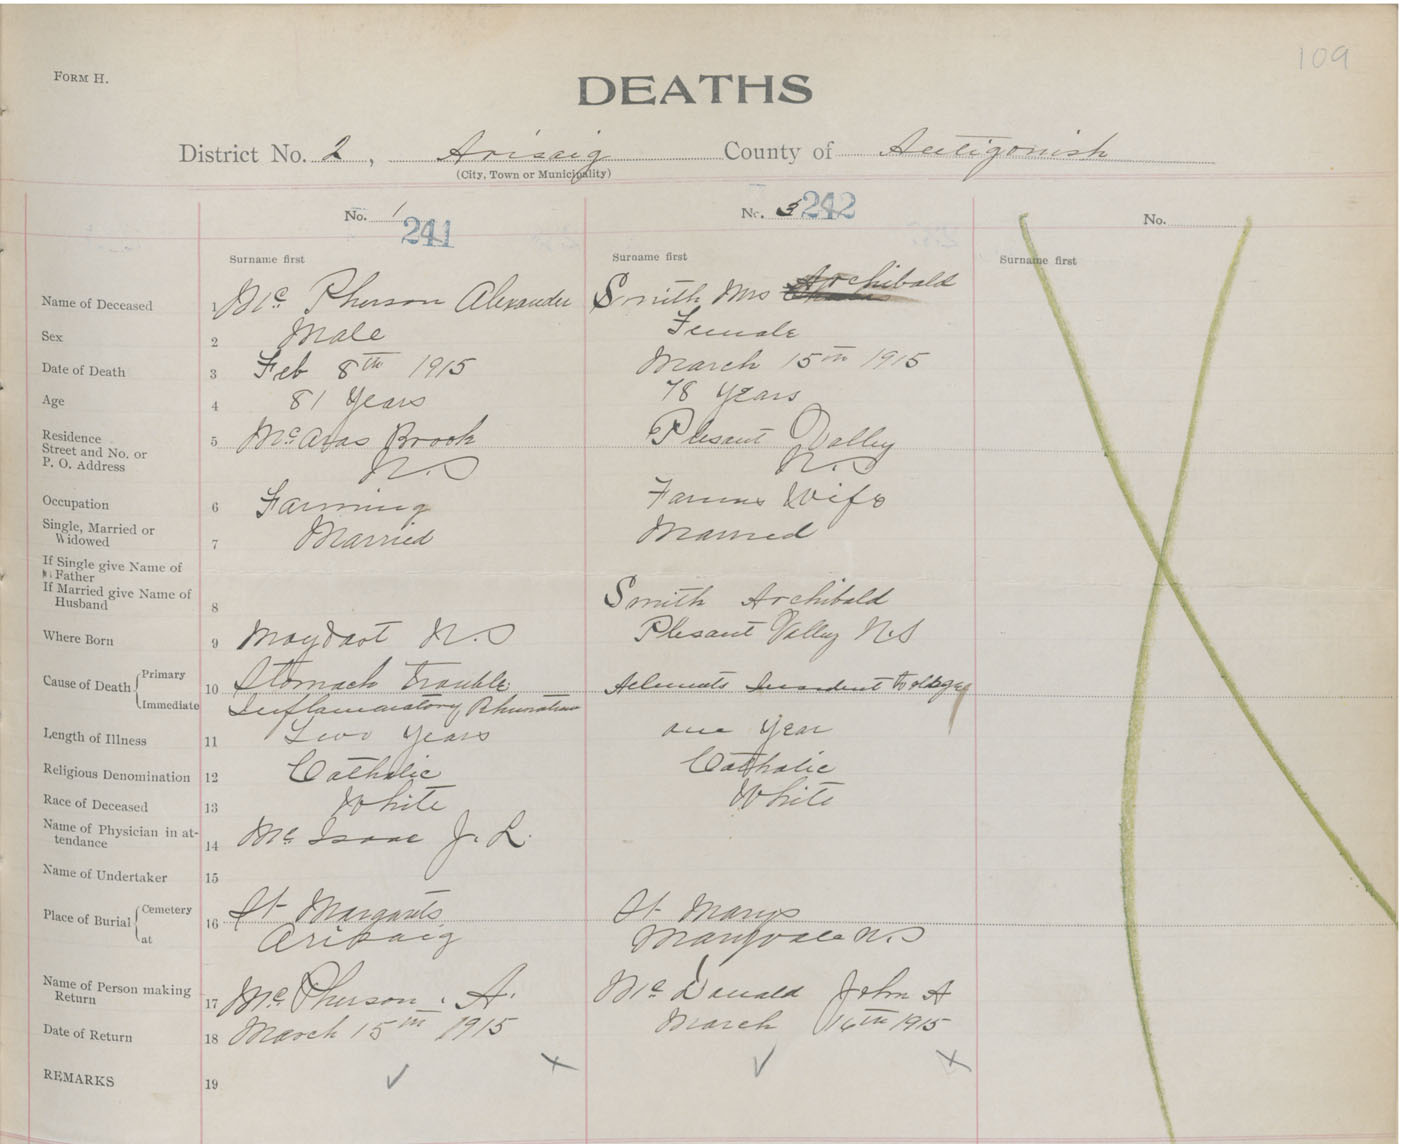 109
FORM H.
DEATHS
District No. 2, Arisaig County of Antigonish
(City, Town or Municipality)
No. 1 241
No. 3 242
No.
Surname first
Surname first
Surname first
Name of Deceased 1 Mc Pherson Alexander Smith Mrs Archibald
Sex 2 Male Female
Date of Death 3 Feb 8th 1915 March 15th 1915
Age 4 81 Years 78 Years
Residence
Street and No. or
P. O. Address 5 McAras Brook N.S Plesant Valley N.S
Occupation 6 Farming Farmers Wife
Single, Married or
Widowed 7 Married Married
If Single give Name of
Father
If Married give Name of
Husband 8 Smith Archibald
Where Born 9 Moydart N.S Plesant Valley N.S
Cause of Death Primary
Immediate 10 Stomach Trouble to old age
Inflammatory
Length of Illness 11 Two Years one Year
Religious Denomination 12 Catholic Catholic
Race of Deceased 13 White White
Name of Physician in at-
tendance 14 Mc Isaac J. L.
Name of Undertaker 15
Place of Burial Cemetery
at 16 St Margarets St Marys
Arisaig Maryvale N.S
Name of Person making
Return 17 McPherson. A. McDonald John A
Date of Return 18 March 15th 1915 March 16th 1915
REMARKS 19